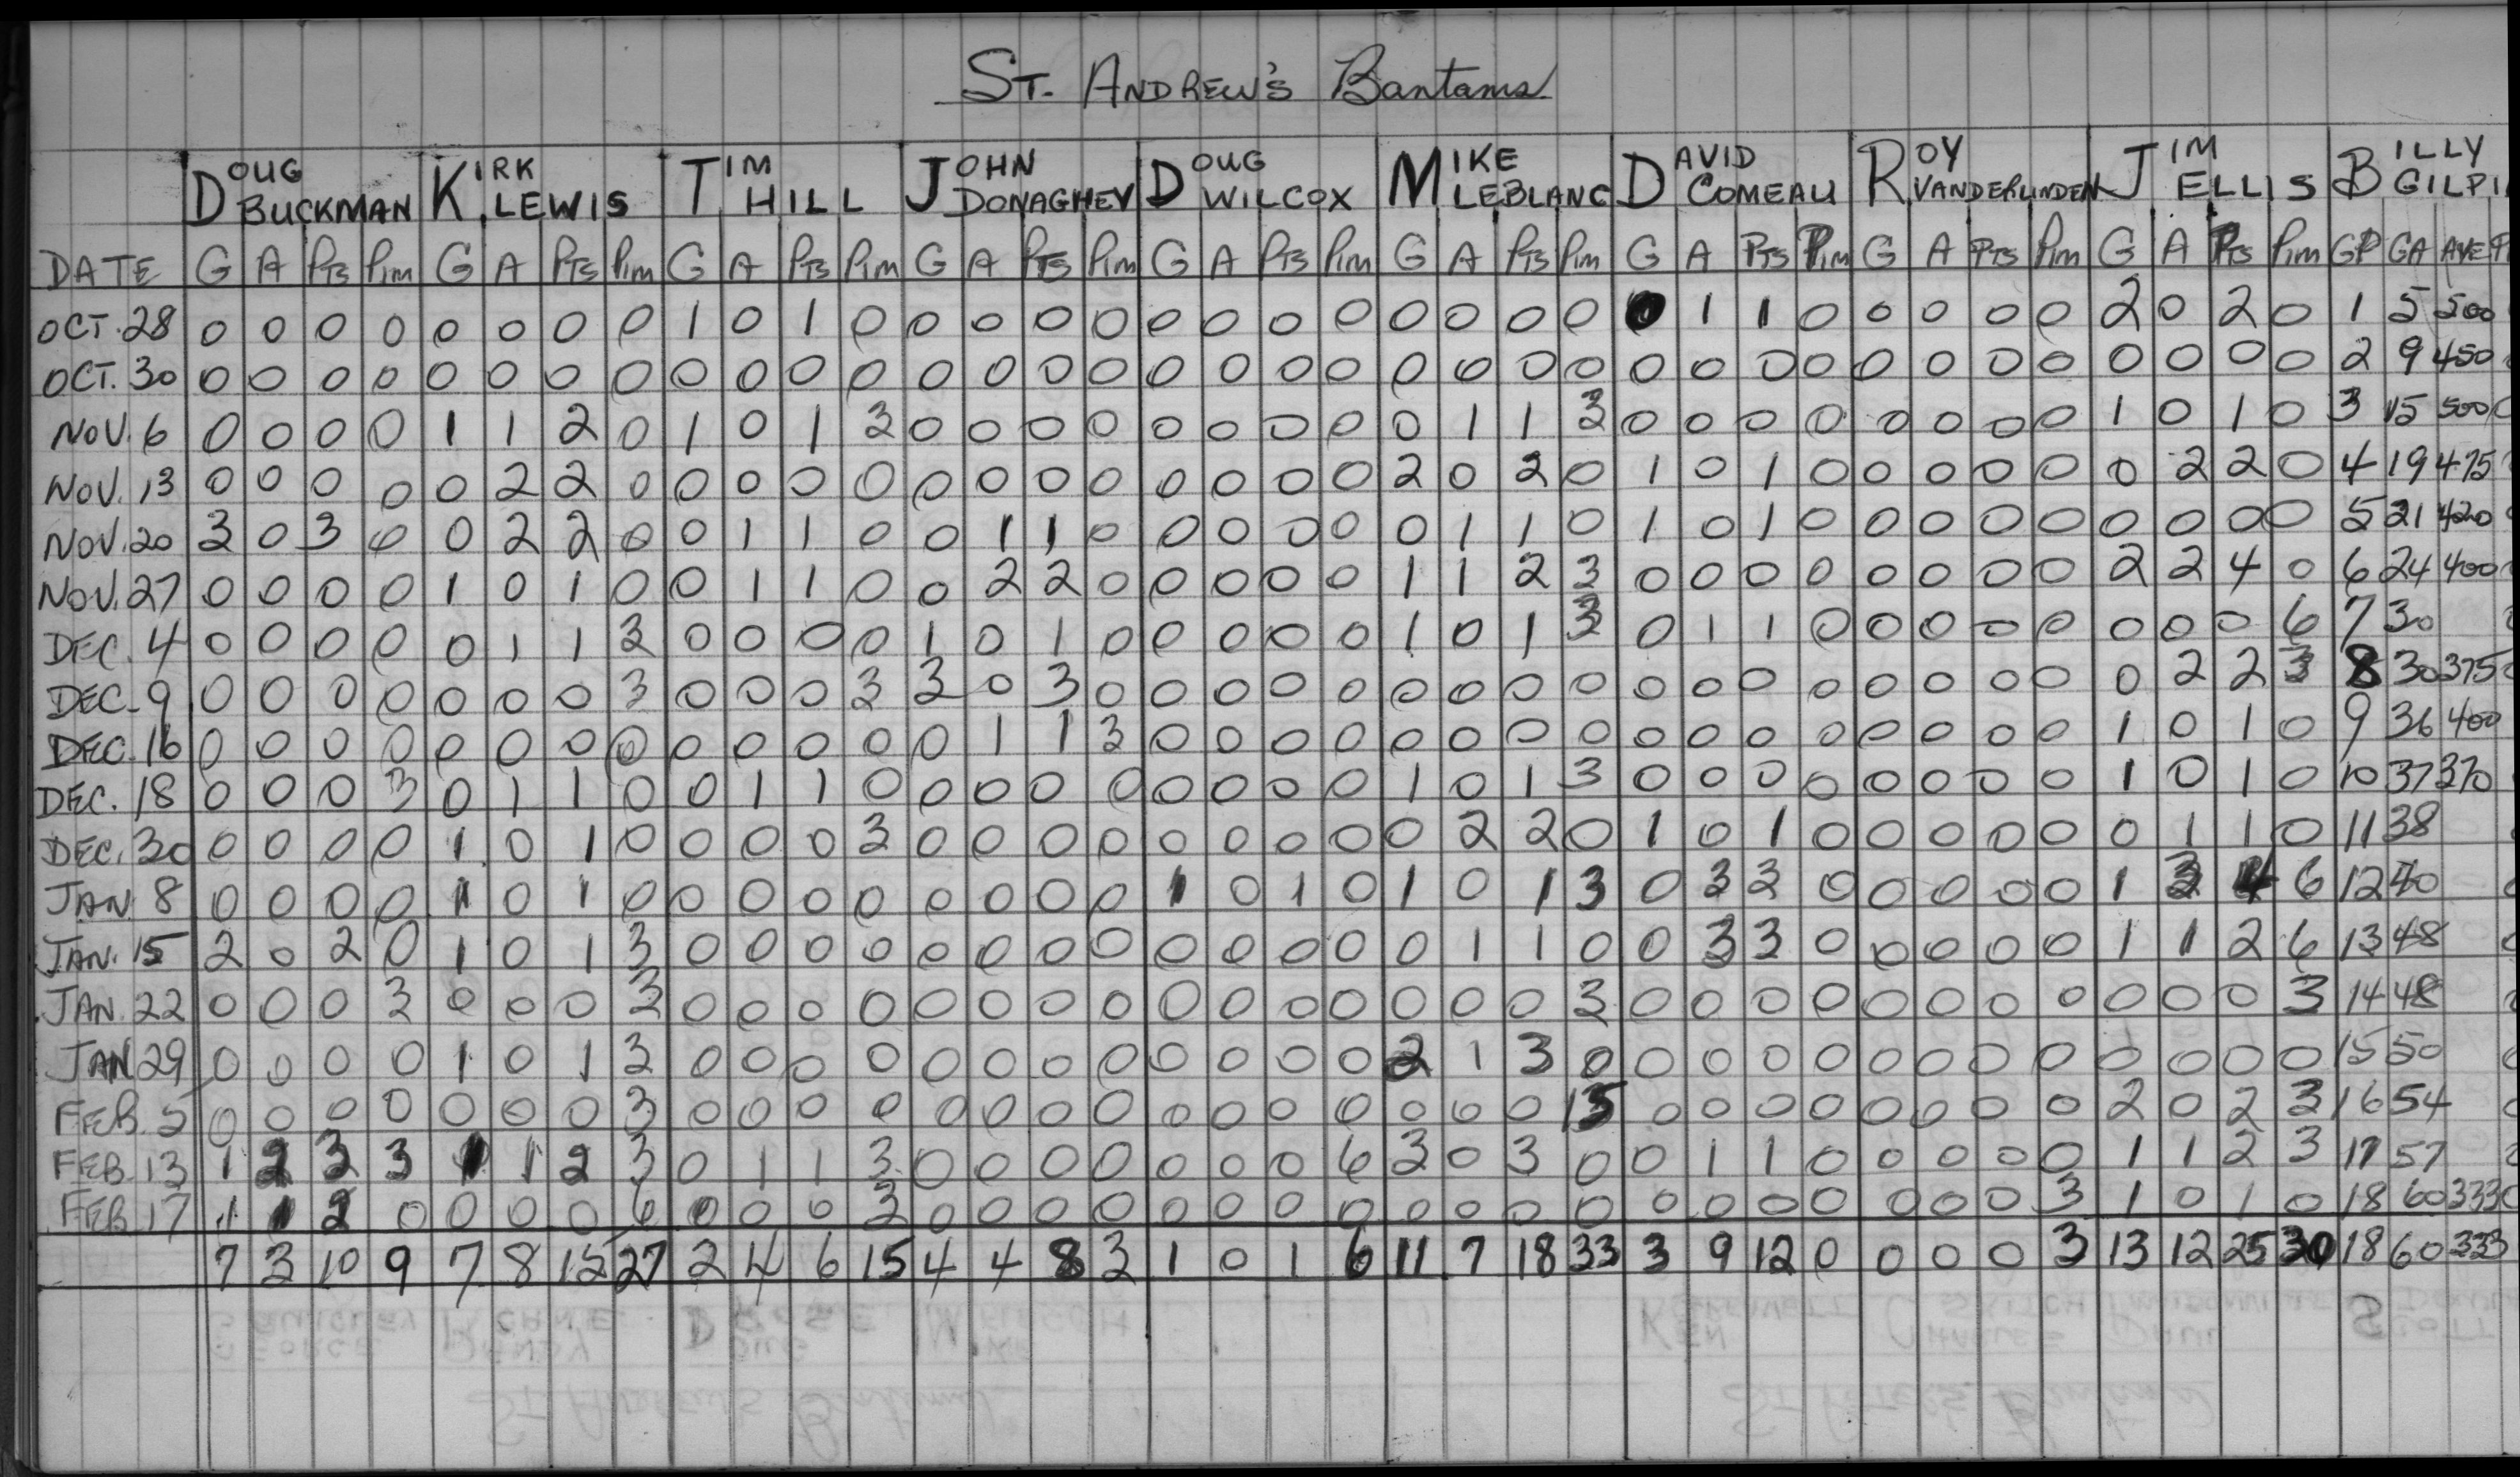 ST. ANDREW'S Bantams
DOUG BUCKMAN KIRK LEWIS TIM HILL JOHN DONAGHEY DOUG WILCOX MIKE LEBLANC DAVID COMEAU ROY VANDERLINDEN JIM ELLIS BILLY GILPI
DATE G A PTS PIM G A PTS PIM G A PTS PIM G A PTS PIM G A PTS PIM G A PTS PIM G A PTS PIM G A PTS PIM G A PTS PIM GP GA AVE P
OCT. 28 0 0 0 0 0 0 0 0 1 0 1 0 0 0 0 0 0 0 0 0 0 0 0 0 0 1 1 0 0 0 0 0 2 0 2 0 1 5 500
OCT. 30 0 0 0 0 0 0 0 0 0 0 0 0 0 0 0 0 0 0 0 0 0 0 0 0 0 0 0 0 0 0 0 0 0 0 0 0 2 9 450
NOV. 6 0 0 0 0 1 1 2 0 1 0 1 3 0 0 0 0 0 0 0 0 0 1 1 3 0 0 0 0 0 0 0 0 1 0 1 0 3 15 500
NOV. 13 0 0 0 0 0 2 2 0 0 0 0 0 0 0 0 0 0 0 0 0 2 0 2 0 1 0 1 0 0 0 0 0 0 2 2 0 4 19 475
NOV. 20 3 0 3 0 0 2 2 0 0 1 1 0 0 1 1 0 0 0 0 0 0 1 1 0 1 0 1 0 0 0 0 0 0 0 0 0 5 21 420
NOV. 27 0 0 0 0 1 0 1 0 0 1 1 0 0 2 2 0 0 0 0 0 1 1 2 3 0 0 0 0 0 0 0 0 2 2 4 0 6 24 400
DEC. 4 0 0 0 0 0 1 1 3 0 0 0 0 1 0 1 0 0 0 0 0 1 0 1 3 0 1 1 0 0 0 0 0 0 0 0 6 7 30
DEC. 9 0 0 0 0 0 0 0 3 0 0 0 3 3 0 3 0 0 0 0 0 0 0 0 0 0 0 0 0 0 0 0 0 0 2 2 3 8 30 375
DEC. 16 0 0 0 0 0 0 0 0 0 0 0 0 0 1 1 3 0 0 0 0 0 0 0 0 0 0 0 0 0 0 0 0 1 0 1 0 9 36 400
DEC. 18 0 0 0 3 0 1 1 0 0 1 1 0 0 0 0 0 0 0 0 0 1 0 1 3 0 0 0 0 0 0 0 0 1 0 1 0 10 37 370
DEC. 30 0 0 0 0 1 0 1 0 0 0 0 3 0 0 0 0 0 0 0 0 0 2 2 0 1 0 1 0 0 0 0 0 0 1 1 0 11 38
JAN. 8 0 0 0 0 1 0 1 0 0 0 0 0 0 0 0 0 1 0 1 0 1 0 1 3 0 3 3 0 0 0 0 0 1 3 4 6 12 40
JAN. 15 2 0 2 0 1 0 1 3 0 0 0 0 0 0 0 0 0 0 0 0 0 1 1 0 0 3 3 0 0 0 0 0 1 1 2 6 13 48
JAN. 22 0 0 0 3 0 0 0 3 0 0 0 0 0 0 0 0 0 0 0 0 0 0 0 3 0 0 0 0 0 0 0 0 0 0 0 3 14 48
JAN 29 0 0 0 0 1 0 1 3 0 0 0 0 0 0 0 0 0 0 0 0 2 1 3 0 0 0 0 0 0 0 0 0 0 0 0 0 15 50
FEB. 5 0 0 0 0 0 0 0 3 0 0 0 0 0 0 0 0 0 0 0 0 0 0 0 15 0 0 0 0 0 0 0 0 2 0 2 3 16 54
FEB. 13 1 2 3 3 1 1 2 3 0 1 1 3 0 0 0 0 0 0 0 6 3 0 3 0 0 1 1 0 0 0 0 0 1 1 2 3 17 57
FEB. 17 1 1 2 0 0 0 0 6 0 0 0 3 0 0 0 0 0 0 0 0 0 0 0 0 0 0 0 0 0 0 0 3 1 0 1 0 18 60 333
7 3 10 9 7 8 15 27 2 4 6 15 4 4 8 3 1 0 1 6 11 7 18 33 3 9 12 0 0 0 0 3 13 12 25 30 18 60 333